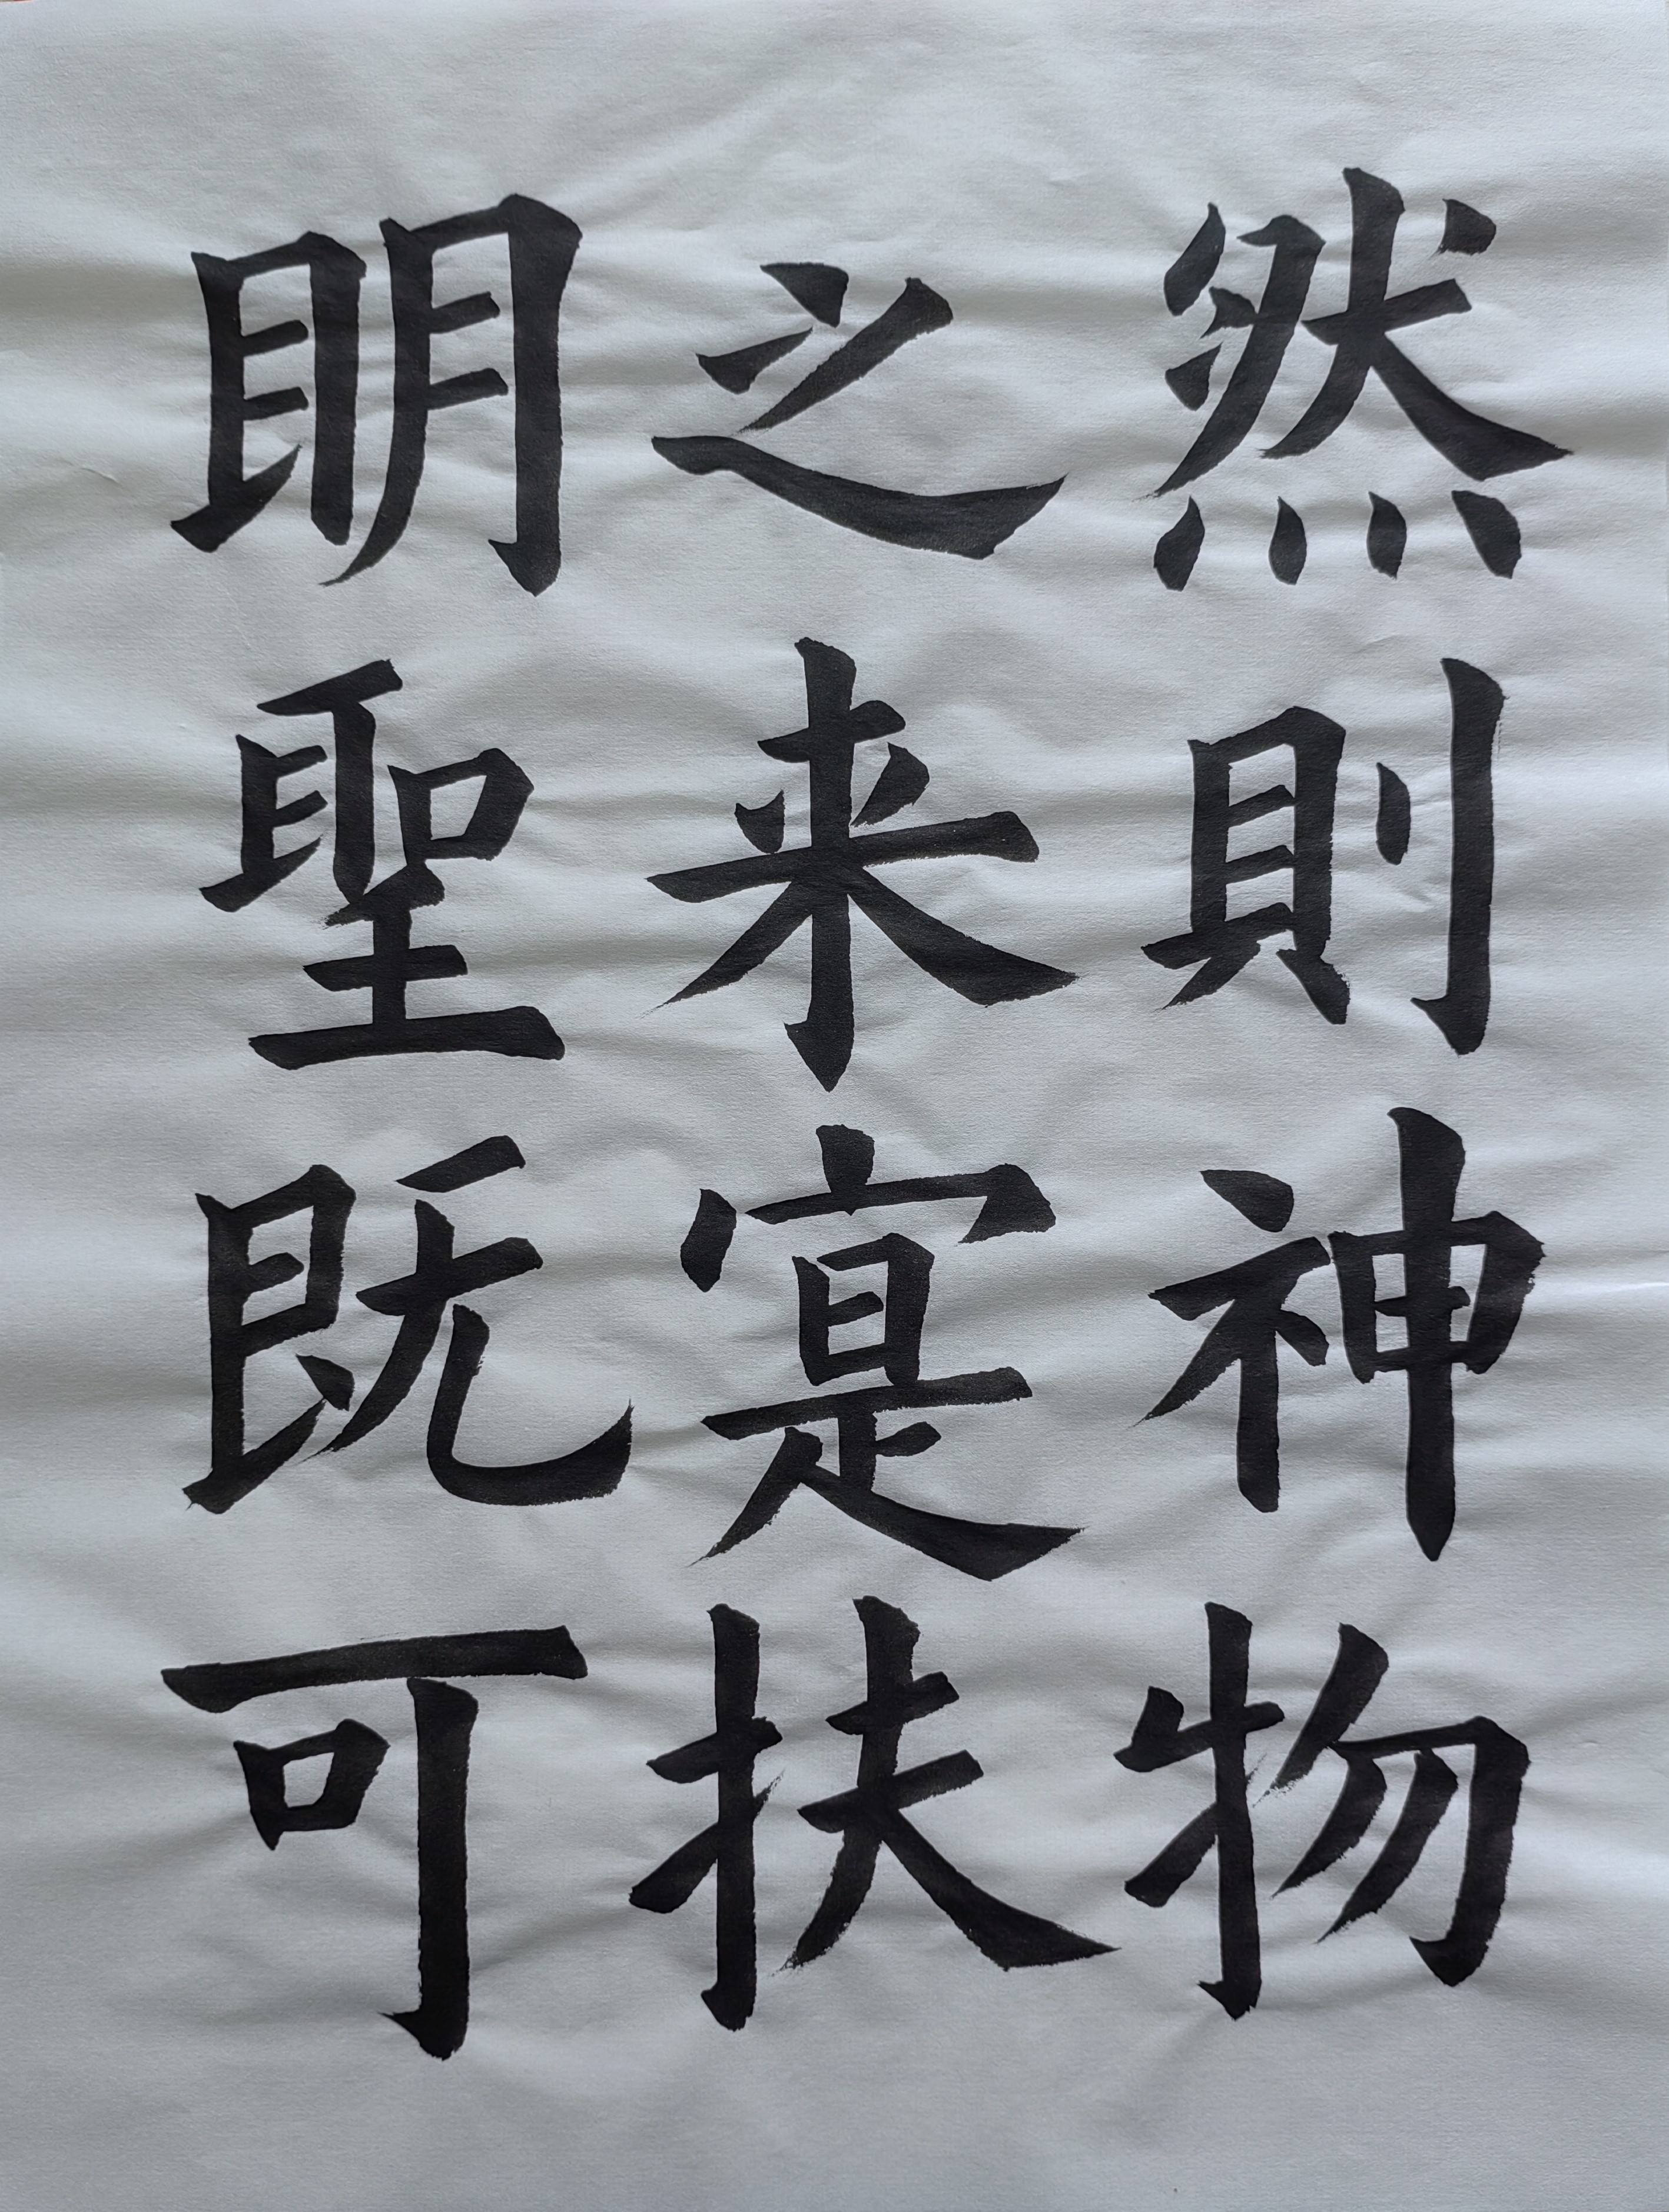 然則神物
之来寔扶
明聖既可